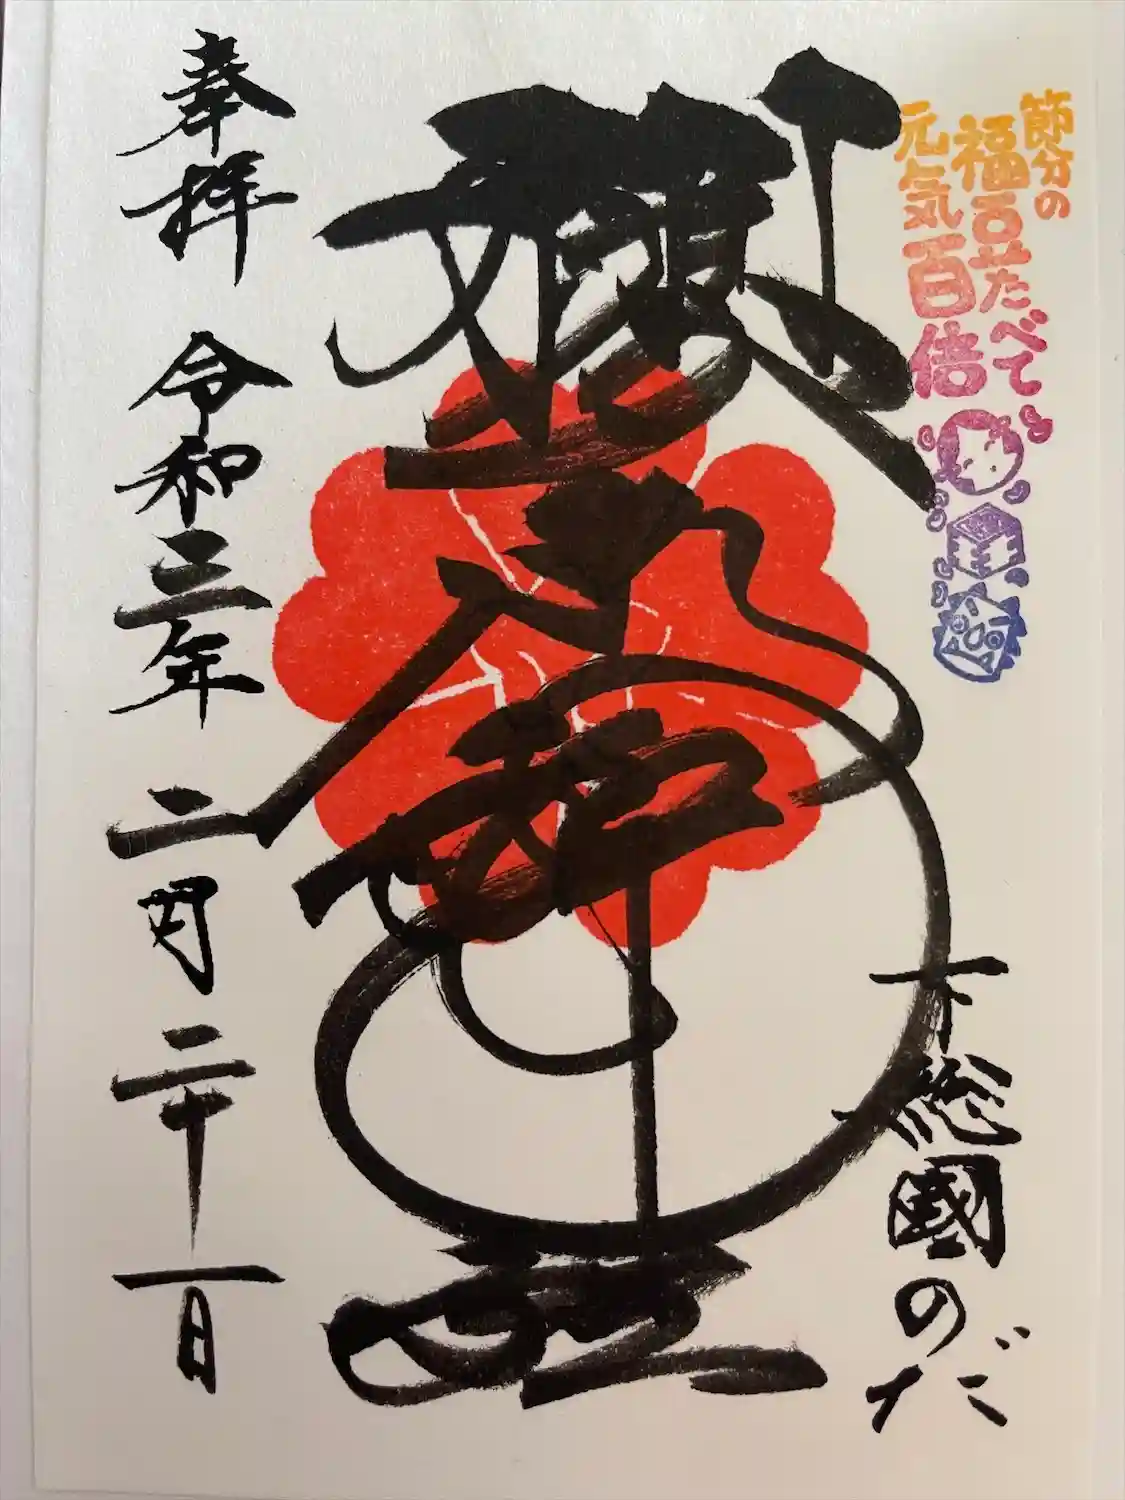 節分の
福豆たべて
元気百倍
下総國のだ
櫻木神社
奉拝 令和三年 二月 二十一日